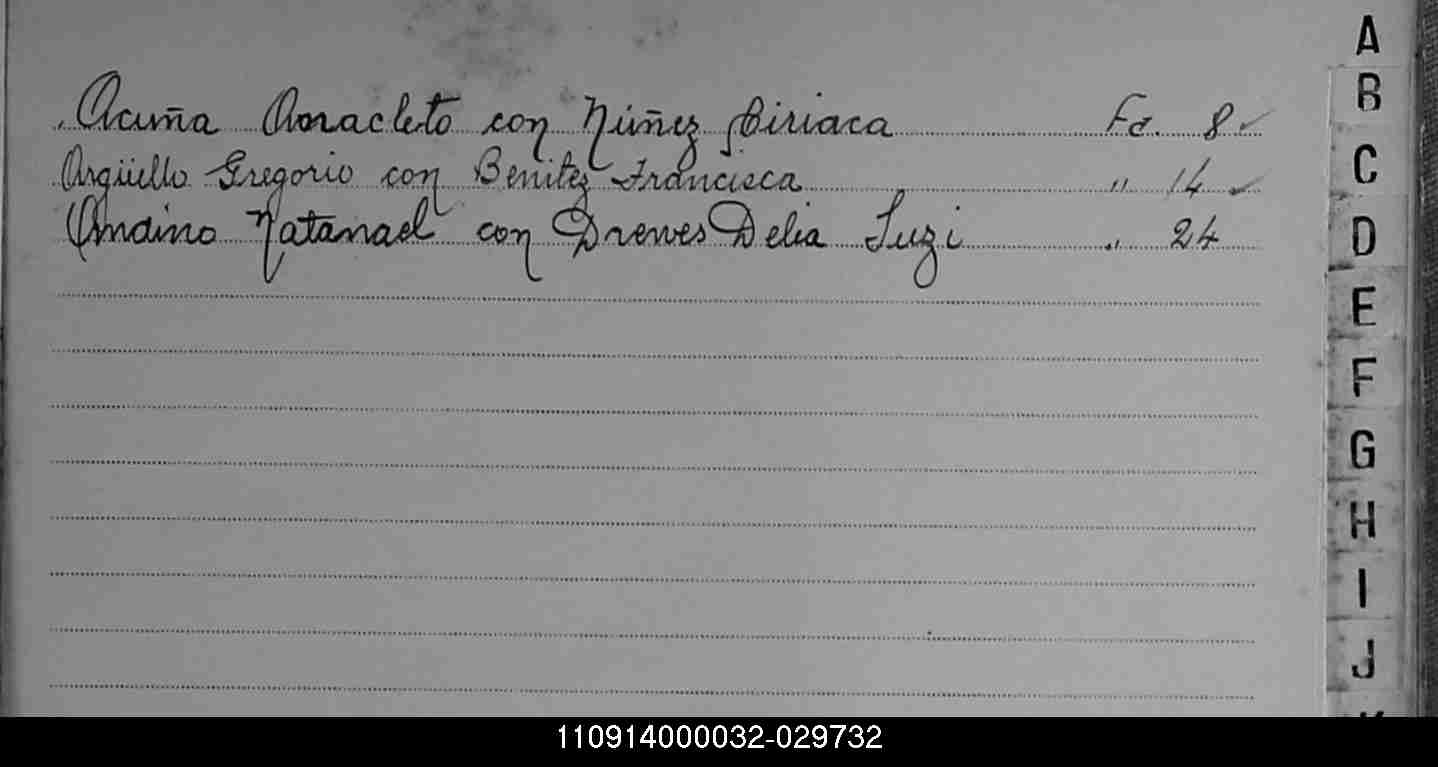 Acuña Anacleto con Núñez Ciriaca Fo. 8 ✓
Argüello Gregorio con Benitez Francisca " 14 ✓
Andino Natanael con Drewes Delia Suzi " 24
A
B
C
D
E
F
G
H
I
J
110914000032-029732